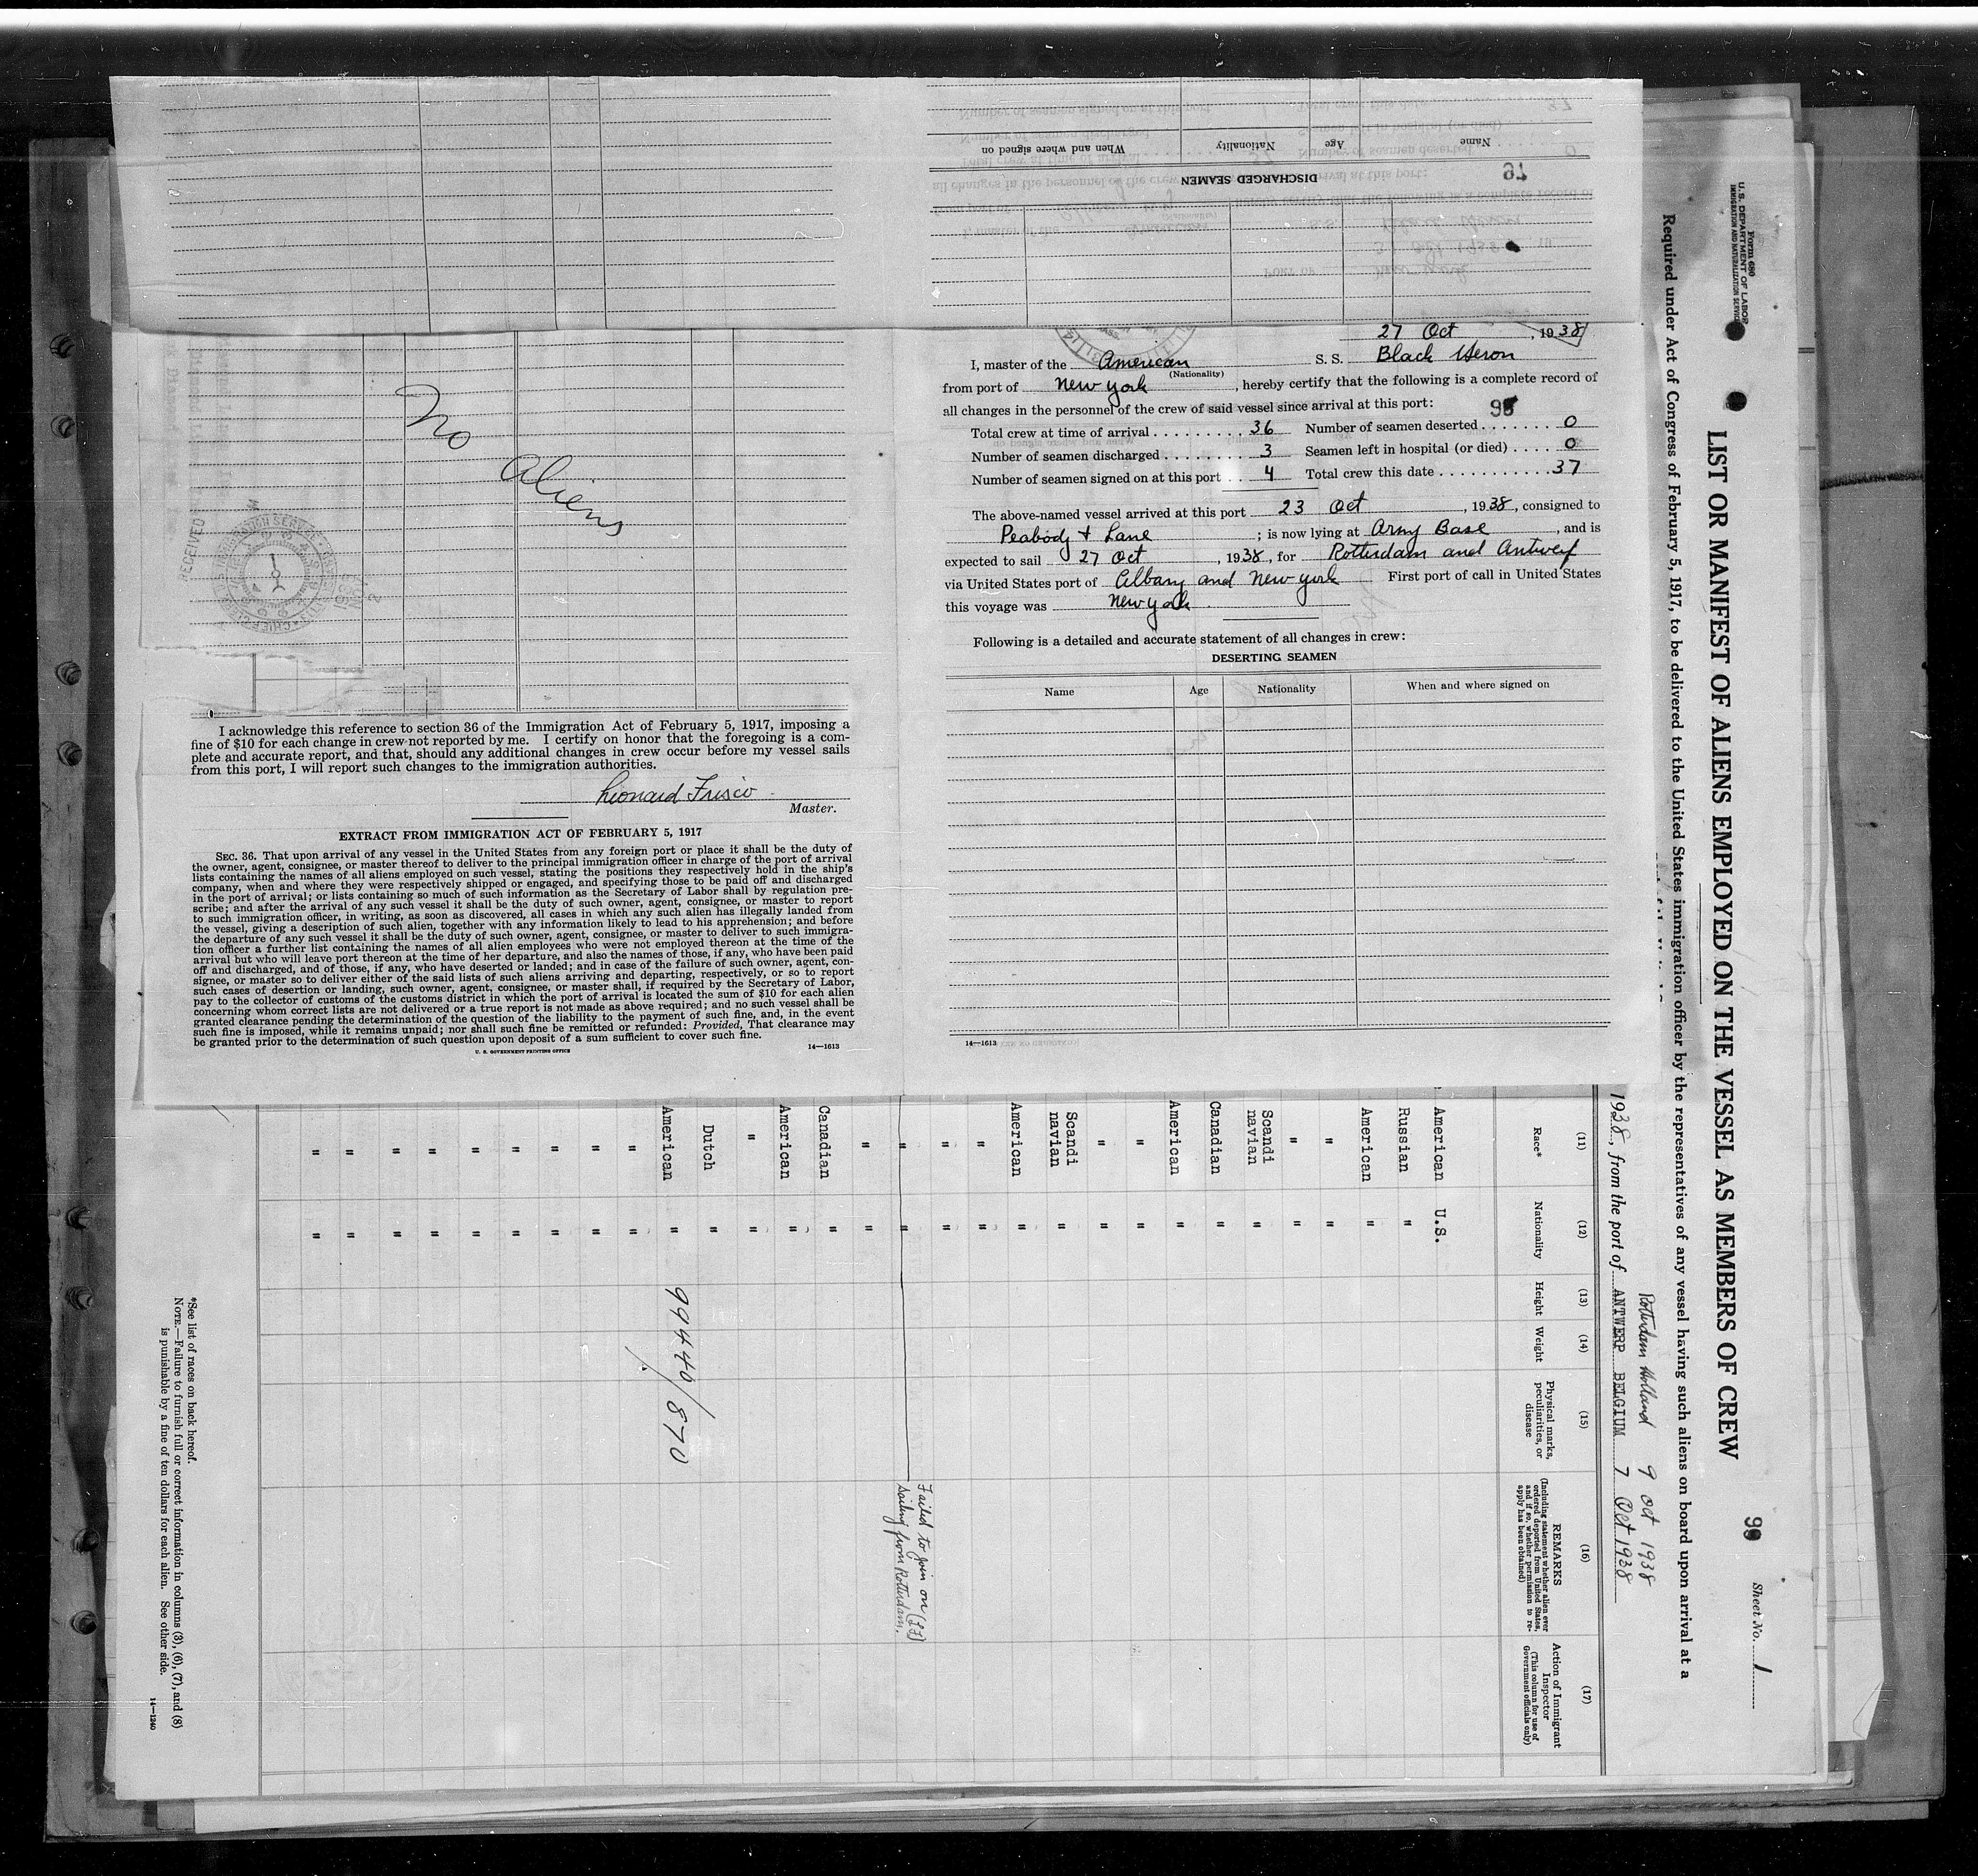 When and where signed on
Nationality
Age
Name
DISCHARGED SEAMEN
97
27 Oct, 1938
I, master of the American S. S. Black Heron
(Nationality)
from port of New York, hereby certify that the following is a complete record of
all changes in the personnel of the crew of said vessel since arrival at this port:
98
Total crew at time of arrival . . . . . . . . . 36 Number of seamen deserted . . . . . . . 0
Number of seamen discharged . . . . . . . . 3 Seamen left in hospital (or died) . . . . 0
Number of seamen signed on at this port . . 4 Total crew this date . . . . . . . . . . . 37
The above-named vessel arrived at this port 23 Oct, 1938, consigned to
Peabody + Lane; is now lying at Army Base, and is
expected to sail 27 Oct, 1938, for Rotterdam and Antwerp
via United States port of Albany and New York First port of call in United States
this voyage was New York
Following is a detailed and accurate statement of all changes in crew:
DESERTING SEAMEN
Name Age Nationality When and where signed on
14—1613
No Aliens
RECEIVED
I acknowledge this reference to section 36 of the Immigration Act of February 5, 1917, imposing a
fine of $10 for each change in crew not reported by me. I certify on honor that the foregoing is a com-
plete and accurate report, and that, should any additional changes in crew occur before my vessel sails
from this port, I will report such changes to the immigration authorities.
Leonard Frisco
Master.
EXTRACT FROM IMMIGRATION ACT OF FEBRUARY 5, 1917
SEC. 36. That upon arrival of any vessel in the United States from any foreign port or place it shall be the duty of
the owner, agent, consignee, or master thereof to deliver to the principal immigration officer in charge of the port of arrival
lists containing the names of all aliens employed on such vessel, stating the positions they respectively hold in the ship's
company, when and where they were respectively shipped or engaged, and specifying those to be paid off and discharged
in the port of arrival; or lists containing so much of such information as the Secretary of Labor shall by regulation pre-
scribe; and after the arrival of any such vessel it shall be the duty of such owner, agent, consignee, or master to report
to such immigration officer, in writing, as soon as discovered, all cases in which any such alien has illegally landed from
the vessel, giving a description of such alien, together with any information likely to lead to his apprehension; and before
the departure of any such vessel it shall be the duty of such owner, agent, consignee, or master to deliver to such immigra-
tion officer a further list containing the names of all alien employees who were not employed thereon at the time of the
arrival but who will leave port thereon at the time of her departure, and also the names of those, if any, who have been paid
off and discharged, and of those, if any, who have deserted or landed; and in case of the failure of such owner, agent, con-
signee, or master so to deliver either of the said lists of such aliens arriving and departing, respectively, or so to report
such cases of desertion or landing, such owner, agent, consignee, or master shall, if required by the Secretary of Labor,
pay to the collector of customs of the customs district in which the port of arrival is located the sum of $10 for each alien
concerning whom correct lists are not delivered or a true report is not made as above required; and no such vessel shall be
granted clearance pending the determination of the question of the liability to the payment of such fine, and, in the event
such fine is imposed, while it remains unpaid; nor shall such fine be remitted or refunded: Provided, That clearance may
be granted prior to the determination of such question upon deposit of a sum sufficient to cover such fine.
U. S. GOVERNMENT PRINTING OFFICE
14—1613
Form 680
U. S. DEPARTMENT OF LABOR
IMMIGRATION AND NATURALIZATION SERVICE
99
Sheet No. 1
LIST OR MANIFEST OF ALIENS EMPLOYED ON THE VESSEL AS MEMBERS OF CREW
Required under Act of Congress of February 5, 1917, to be delivered to the United States immigration officer by the representatives of any vessel having such aliens on board upon arrival at a
Rotterdam Holland 9 Oct 1938
1938, from the port of ANTWERP BELGIUM 7 Oct 1938
(11) (12) (13) (14) (15) (16) (17)
Race* Nationality Height Weight Physical marks, peculiarities, or disease REMARKS (Including statement whether alien ever ordered deported from United States, and if so, whether permission to re-apply has been obtained) Action of Immigrant Inspector (This column for use of Government officials only)
American U.S.
Russian "
American "
" "
" "
Scandi navian "
Canadian "
American "
" "
" "
Scandi navian "
American "
" "
" "
" " Failed to join on (LF) sailing from Rotterdam.
" "
Canadian "
American "
" "
Dutch "
American " 99440/870
" "
" "
" "
" "
" "
" "
" "
" "
" "
*See list of races on back hereof.
NOTE.—Failure to furnish full or correct information in columns (3), (6), (7), and (8)
is punishable by a fine of ten dollars for each alien. See other side.
14—1240